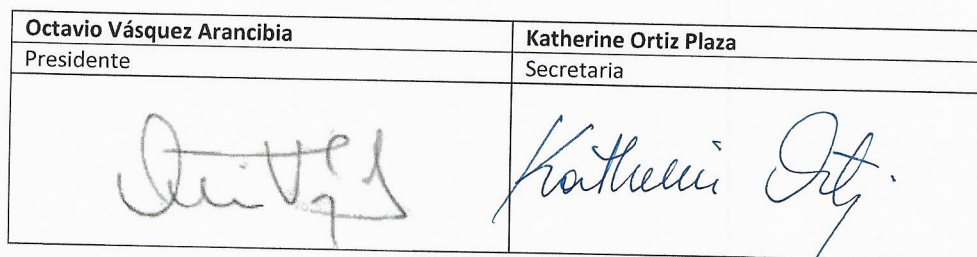 Octavio Vásquez Arancibia
Katherine Ortiz Plaza
Presidente
Secretaria
Katherin Ortiz